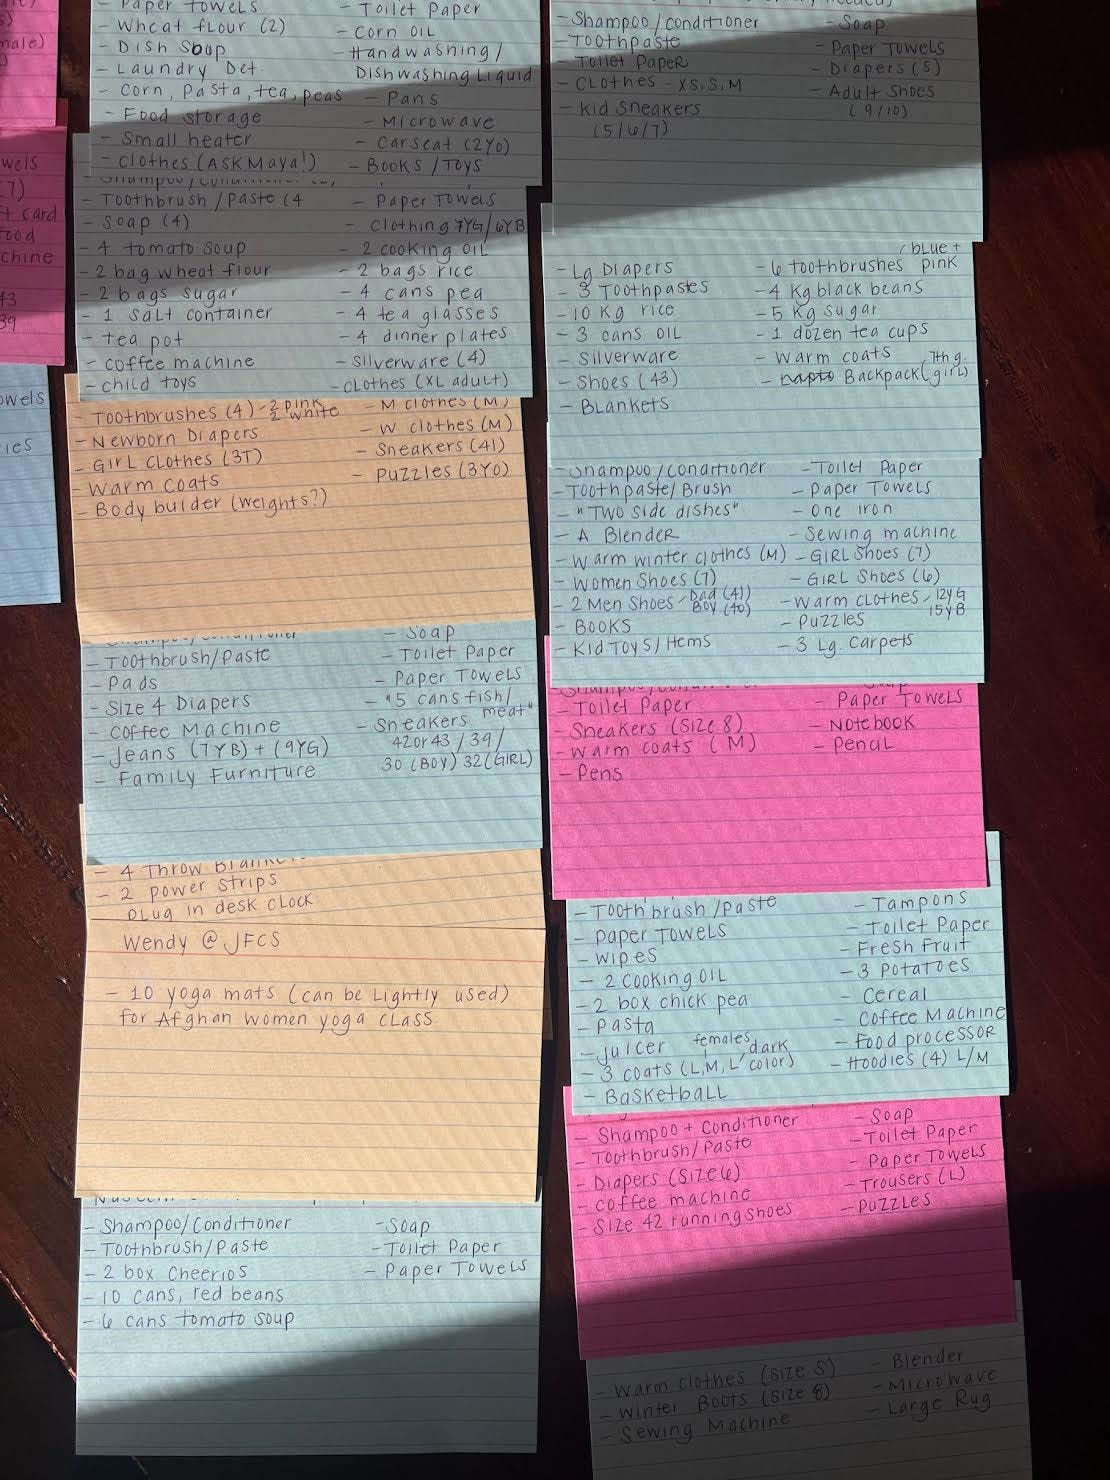 male)
wels
7)
t card
food
chine
43
39
owels
ies
- Paper Towels
- Wheat flour (2)
- Dish Soap
- Laundry Det.
- Corn, Pasta, tea, peas
- Food storage
- Small heater
- Clothes (ASK Maya!)
- Toilet Paper
- Corn Oil
- Handwashing /
Dishwashing Liquid
- Pans
- Microwave
- Carseat (2YO)
- Books / Toys
- Toothbrush / Paste (4
- Soap (4)
- 4 tomato soup
- 2 bag wheat flour
- 2 bags sugar
- 1 salt container
- tea pot
- coffee machine
- child toys
- Paper Towels
- Clothing 7YG / 6YB
- 2 cooking oil
- 2 bags rice
- 4 cans pea
- 4 tea glasses
- 4 dinner plates
- Silverware (4)
- Clothes (XL adult)
- Toothbrushes (4) - 2 pink
2 white
- Newborn Diapers
- Girl Clothes (3T)
- Warm coats
- Body builder (weights?)
- M clothes (M)
- W clothes (M)
- Sneakers (41)
- Puzzles (3YO)
- Toothbrush/Paste
- Pads
- Size 4 Diapers
- Coffee Machine
- Jeans (7YB) + (9YG)
- Family Furniture
- Soap
- Toilet Paper
- Paper Towels
- "5 cans fish/
meat"
- Sneakers
42 or 43 / 39 /
30 (BOY) 32 (GIRL)
- 4 Throw Blankets
- 2 power strips
plug in desk clock
Wendy @ JFCS
- 10 yoga mats (can be Lightly used)
for Afghan women yoga class.
- Shampoo/Conditioner
- Toothbrush/Paste
- 2 box Cheerios
- 10 cans, red beans
- 6 cans tomato soup
- Soap
- Toilet Paper
- Paper Towels
- Shampoo / Conditioner
- Toothpaste
- Toilet Paper
- Clothes - XS, S, M
- Kid Sneakers
(5/6/7)
- Soap
- Paper Towels
- Diapers (5)
- Adult Shoes
(9/10)
- Lg Diapers
- 3 Toothpastes
- 10 Kg rice
- 3 cans OIL
- Silverware
- Shoes (43)
- Blankets
(blue +
- 6 toothbrushes pink
- 4 Kg black beans
- 5 Kg sugar
- 1 dozen tea cups
- Warm coats
7th g.
- Backpack (girl)
- Shampoo / Conditioner
- Toothpaste/Brush
- "Two side dishes"
- A Blender
- Warm winter clothes (M)
- Women Shoes (7)
- 2 Men Shoes / Dad (41)
Boy (40)
- Books
- Kid Toys / Items
- Toilet Paper
- Paper Towels
- One iron
- Sewing machine
- Girl Shoes (7)
- Girl Shoes (6)
- Warm clothes / 12yG
15yB
- Puzzles
- 3 Lg. Carpets
- Toilet Paper
- Sneakers (Size 8)
- Warm coats (M)
- Pens
- Paper Towels
- Notebook
- Pencil
- Toothbrush / Paste
- Paper Towels
- Wipes
- 2 Cooking Oil
- 2 box chick pea
- Pasta
- Juicer
females, dark
- 3 coats (L, M, L color)
- Basketball
- Tampons
- Toilet Paper
- Fresh Fruit
- 3 Potatoes
- Cereal
- Coffee Machine
- Food processor
- Hoodies (4) L/M
- Shampoo + Conditioner
- Toothbrush/Paste
- Diapers (Size 6)
- Coffee machine
- Size 42 running shoes
- Soap
- Toilet Paper
- Paper Towels
- Trousers (L)
- Puzzles
- Warm clothes (Size S)
- Winter Boots (Size 8)
- Sewing Machine
- Blender
- Microwave
- Large Rug